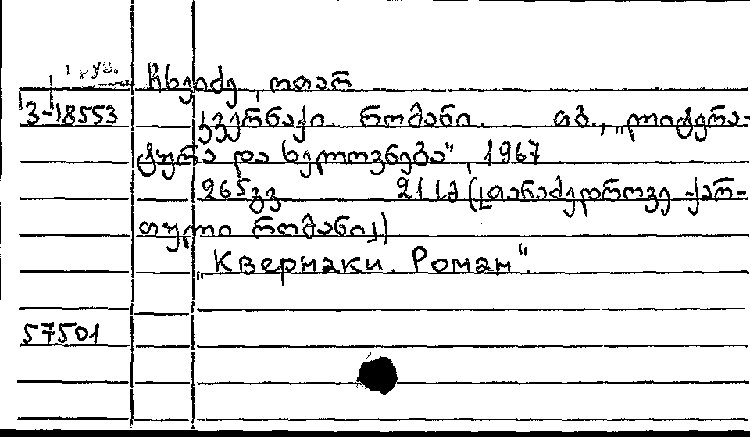 Груз.
ჩხეიძე, ოთარ
3-18553
კვერნაქი. რომანი. თბ., „ლიტერა-
ტურა და ხელოვნება", 1967
265გვ 21 სმ (თანამედროვე ქარ-
თული რომანი)
„Квернаки. Роман".
57501